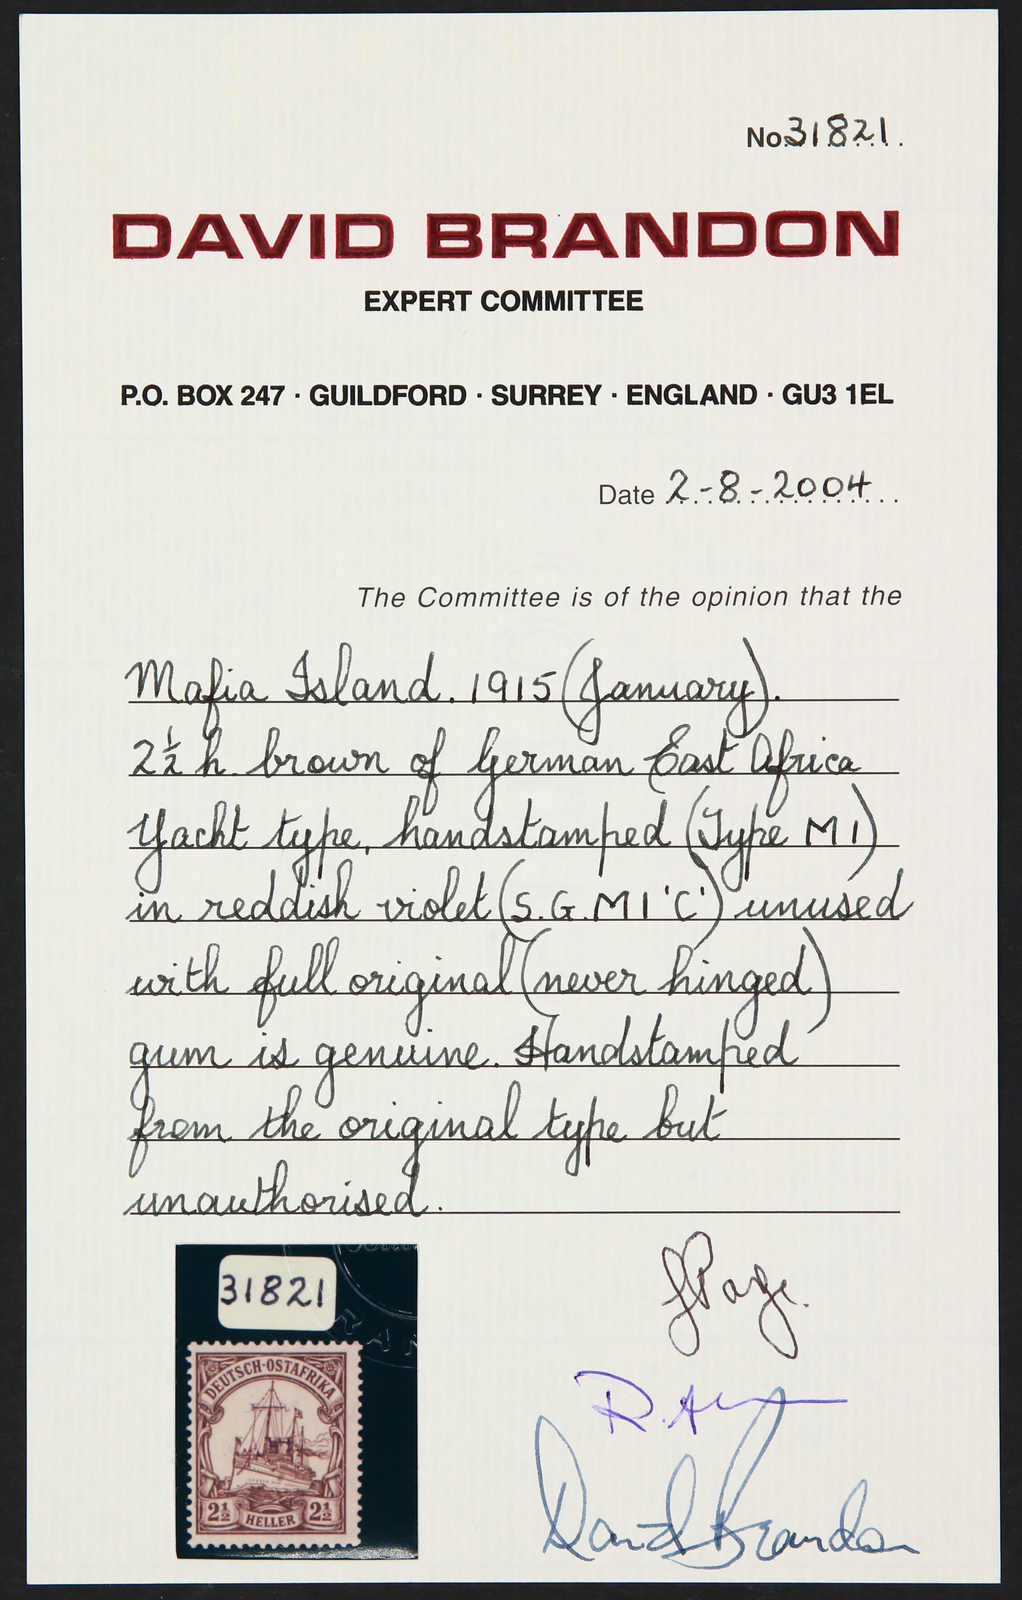 No. 31821
DAVID BRANDON
EXPERT COMMITTEE
P.O. BOX 247 · GUILDFORD · SURREY · ENGLAND · GU3 1EL
Date 2-8-2004
The Committee is of the opinion that the
Mafia Island. 1915 (January).
2½ h. brown of German East Africa
Yacht type, handstamped (Type M1)
in reddish violet (S.G. M1 'C') unused
with full original (never hinged)
gum is genuine. Handstamped
from the original type but
unauthorised.
31821
DEUTSCH-OSTAFRIKA
2½ HELLER 2½
Page.
David Brandon